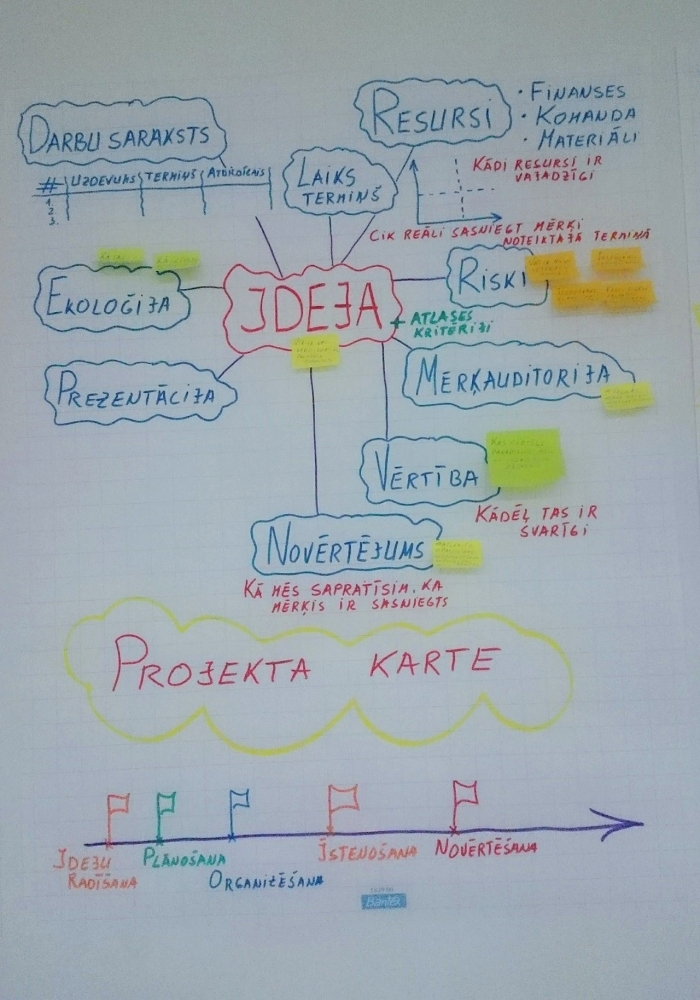 DARBU SARAKSTS
# UZDEVUMS TERMIŅŠ ATBILDĪGAIS
1.
2.
3.
LAIKS
TERMIŅŠ
RESURSI
• FINANSES
• KOMANDA
• MATERIĀLI
KĀDI RESURSI IR
VAJADZĪGI
CIK REĀLI SASNIEGT MĒRĶI
NOTEIKTAJĀ TERMIŅĀ
EKOLOĢIJA
IDEJA
+ ATLASES
KRITĒRIJI
RISKI
PREZENTĀCIJA
MĒRĶAUDITORIJA
VĒRTĪBA
KĀDĒĻ TAS IR
SVARĪGI
NOVĒRTĒJUMS
KĀ MĒS SAPRATĪSIM, KA
MĒRĶIS IR SASNIEGTS
PROJEKTA KARTE
IDEJU
RADĪŠANA
PLĀNOŠANA
ORGANIZĒŠANA
ĪSTENOŠANA
NOVĒRTĒŠANA
Bantex